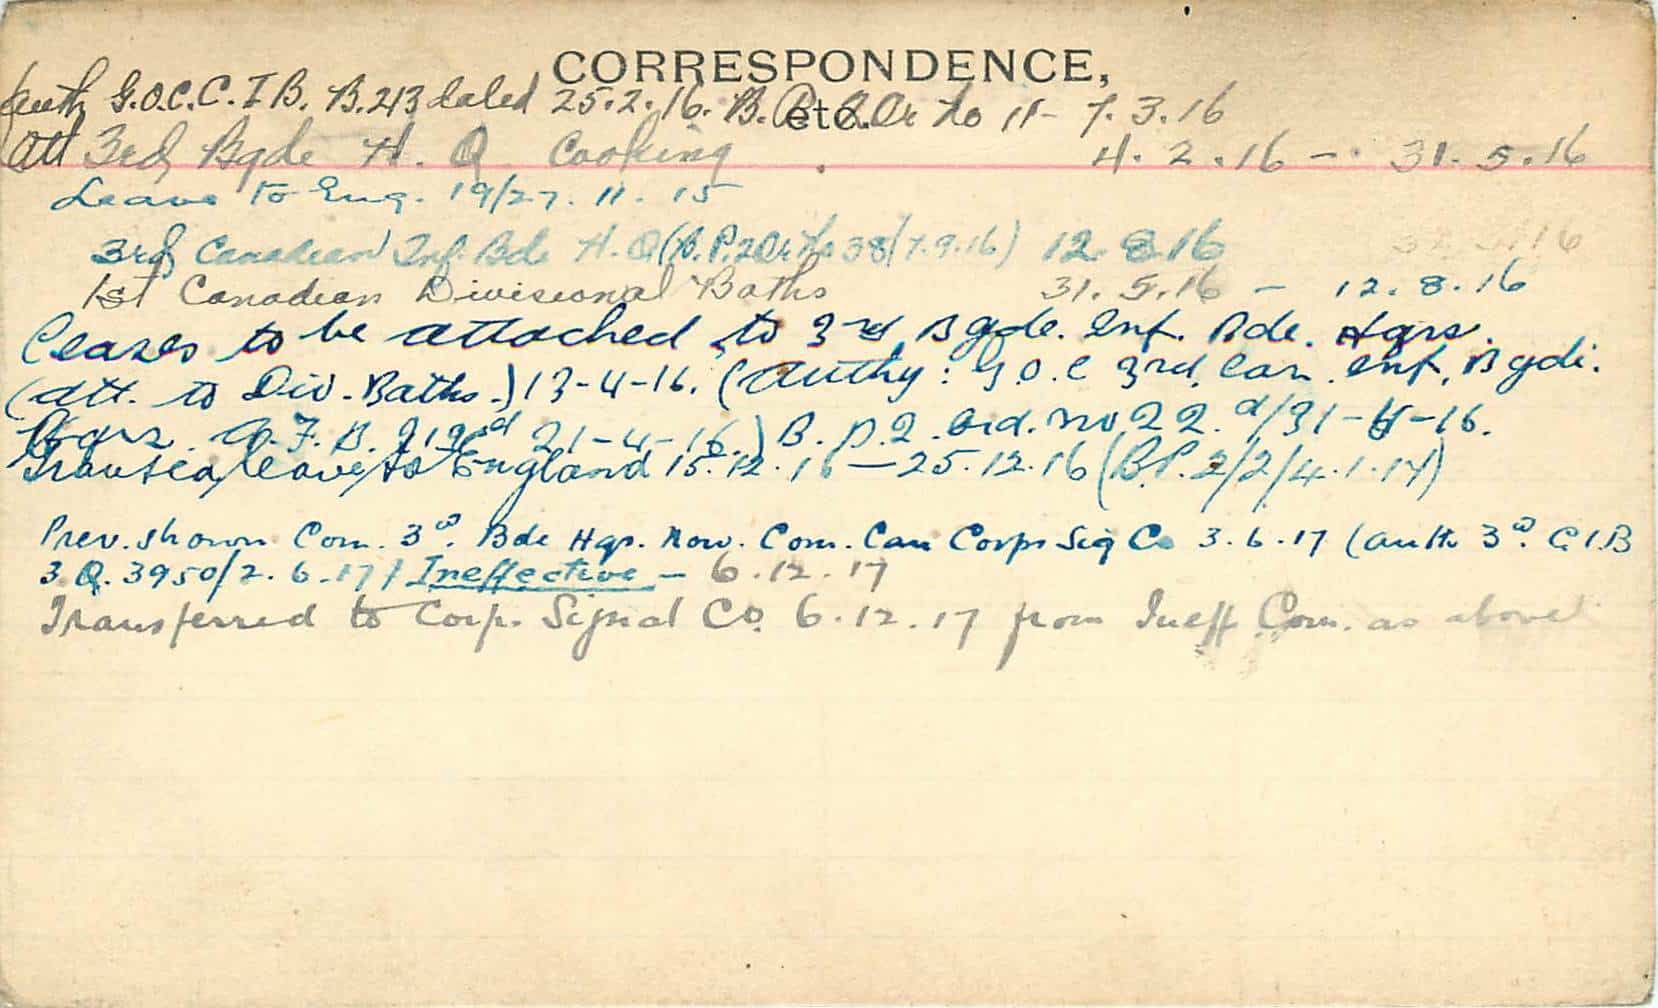 CORRESPONDENCE,
etc.
Auth G.O.C.C.I.B. B.213 dated 25.2.16. B. P. 2. Or No 11 - 7.3.16
Att 3rd Bgde H.Q. Cooking 4.2.16 - 31.5.16
Leave to Eng. 19/27.11.15
3rd Canadian Inf. Bde H.Q (B.P.2 Or No 38/17.9.16) 12.8.16
1st Canadian Divisional Baths 31.5.16 - 12.8.16
Ceases to be attached to 3rd Bgde. Inf. Bde. Hqrs.
(att. to Div. Baths.) 13-4-16. (Authy: G.O.C 3rd. Can. Inf. Bgde.
Hqrs. 21-4-16) B.P.2. Ord. No 22. d/31-5-16.
Granted leave to England 15.12.16 — 25.12.16 (B.P.2/2/4.1.17)
Prev. shown Com. 3rd. Bde Hqs. Now. Com. Can Corps Sig Co 3.6.17 (auth 3rd. C.I.B
3.Q.3950/2.6.17) Ineffective — 6.12.17
Transferred to Corps. Signal Co. 6.12.17 from Ineff Com. as above